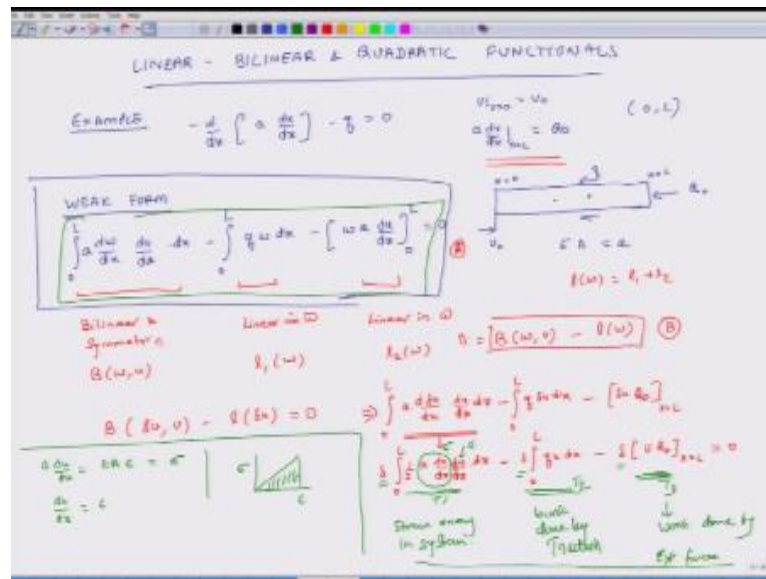 LINEAR - BILINEAR & QUADRATIC FUNCTIONALS
Example - d/dx [ a du/dx ] - q = 0
u|x=0 = u0 (0,L)
a du/dx |x=L = Q0
x=0 x=L
Q0
u0
EA = a
WEAK FORM
∫0^L a dw/dx du/dx dx - ∫0^L q w dx - [ w a du/dx ]0^L = 0 (A)
l(w) = l1 + l2
Bilinear & Symmetric
B(w,u)
Linear in w
l1(w)
Linear in w
l2(w)
0 = B(w,u) - l(w) (B)
B(δu,u) - l(δu) = 0
⇒ ∫0^L a dδu/dx du/dx dx - ∫0^L q δu dx - [δu Q0]x=L
δ ∫0^L 1/2 a du/dx du/dx dx - δ ∫0^L q u dx - δ [u Q0]x=L = 0
T1 T2 T3
a du/dx = EAε = σ
du/dx = ε
σ
ε
Strain energy in system
work done by Traction
work done by Ext force